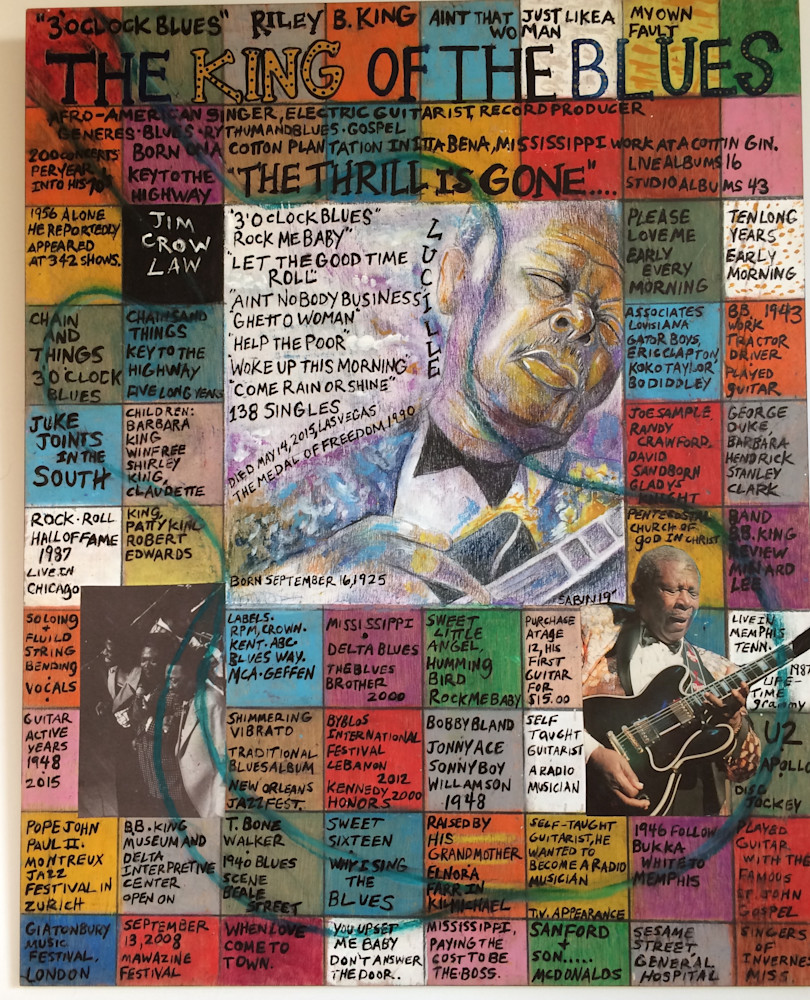 "3'OCLOCK BLUES"
RILEY B. KING
AINT THAT
JUST LIKE A
WOMAN
MY OWN
FAULT
THE KING OF THE BLUES
AFRO-AMERICAN SINGER, ELECTRIC GUITARIST, RECORD PRODUCER
GENERES-BLUES-RYTHUM AND BLUES-GOSPEL
BORN ON A COTTON PLANTATION IN ITTA BENA, MISSISSIPPI WORK AT A COTTIN GIN.
200 CONCERTS
PER YEAR
INTO HIS 70'
KEY TO THE
HIGHWAY
"THE THRILL IS GONE"....
LIVE ALBUMS 16
STUDIO ALBUMS 43
1956 ALONE
HE REPORTEDLY
APPEARED
AT 342 SHOWS.
JIM
CROW
LAW
"3'OCLOCK BLUES"
ROCK ME BABY"
"LET THE GOOD TIME
ROLL"
"AINT NOBODY BUSINESS"
GHETTO WOMAN"
"HELP THE POOR"
"WOKE UP THIS MORNING"
"COME RAIN OR SHINE"
138 SINGLES
DIED MAY 14, 2015, LAS VEGAS
THE MEDAL OF FREEDOM 1990
LUCILLE
BORN SEPTEMBER 16, 1925
"SABIN 19"
PLEASE
LOVE ME
EARLY
EVERY
MORNING
TEN LONG
YEARS
EARLY
MORNING
CHAIN
AND
THINGS
3 O'CLOCK
BLUES
CHAINS AND
THINGS
KEY TO THE
HIGHWAY
FIVE LONG YEARS
ASSOCIATES
LOUISIANA
GATOR BOYS,
ERIC CLAPTON,
KOKO TAYLOR
BO DIDDLEY
B.B. 1943
WORK
TRACTOR
DRIVER
PLAYED
GUITAR
JUKE
JOINTS
IN THE
SOUTH
CHILDREN:
BARBARA
KING
WINFREE
SHIRLEY
KING,
CLAUDETTE
JOE SAMPLE,
RANDY
CRAWFORD.
DAVID
SANDBORN
GLADYS
KNIGHT
GEORGE
DUKE,
BARBARA
HENDRICK
STANLEY
CLARK
ROCK-ROLL
HALL OF FAME
1987
LIVE IN
CHICAGO
KING,
PATTY KING
ROBERT
EDWARDS
PENTECOSTAL
CHURCH OF
GOD IN CHRIST
BAND
B.B. KING
REVIEW
MILLARD
LEE
SOLOING
+
FLUILD
STRING
BENDING
VOCALS
LABELS-
RPM, CROWN-
KENT-ABC
BLUES WAY.
MCA-GEFFEN
MISSISSIPPI
DELTA BLUES
THE BLUES
BROTHER
2000
SWEET
LITTLE
ANGEL,
HUMMING
BIRD
ROCK ME BABY
PURCHASE
AT AGE
12, HIS
FIRST
GUITAR
FOR
$15.00
LIVE IN
MEMPHIS
TENN.
1987
LIFE-
TIME
grammy
GUITAR
ACTIVE
YEARS
1948
2015
SHIMMERING
VIBRATO
TRADITIONAL
BLUES ALBUM
NEW ORLEANS
JAZZ FEST.
BYBLOS
INTERNATIONAL
FESTIVAL
LEBANON
2012
KENNEDY 2000
HONORS
BOBBY BLAND
JONNY ACE
SONNY BOY
WILLAMSON
1948
SELF
TAUGHT
GUITARIST
A RADIO
MUSICIAN
U2
APOLLO
DISC
JOCKEY
POPE JOHN
PAUL II.
MONTREUX
JAZZ
FESTIVAL IN
ZURICH
B.B. KING
MUSEUM AND
DELTA
INTERPRETIVE
CENTER
OPEN ON
T. BONE
WALKER
1940 BLUES
SCENE
BEALE
STREET
SWEET
SIXTEEN
WHY I SING
THE
BLUES
RAISED BY
HIS
GRANDMOTHER
ELNORA
FARR IN
KILMICHAEL
SELF-TAUGHT
GUITARIST, HE
WANTED TO
BECOME A RADIO
MUSICIAN
T.V. APPEARANCE
1946 FOLLOW
BUKKA
WHITE TO
MEMPHIS
PLAYED
GUITAR
WITH THE
FAMOUS
ST. JOHN
GOSPEL
GLATONBURY
MUSIC
FESTIVAL.
LONDON
SEPTEMBER
13, 2008
MAWAZINE
FESTIVAL
WHEN LOVE
COME TO
TOWN.
YOU UPSET
ME BABY
DON'T ANSWER
THE DOOR..
MISSISSIPPI,
PAYING THE
COST TO BE
THE BOSS.
SANFORD
+
SON.....
MCDONALDS
SESAME
STREET,
GENERAL
HOSPITAL
SINGERS
OF
INVERNE
MISS.